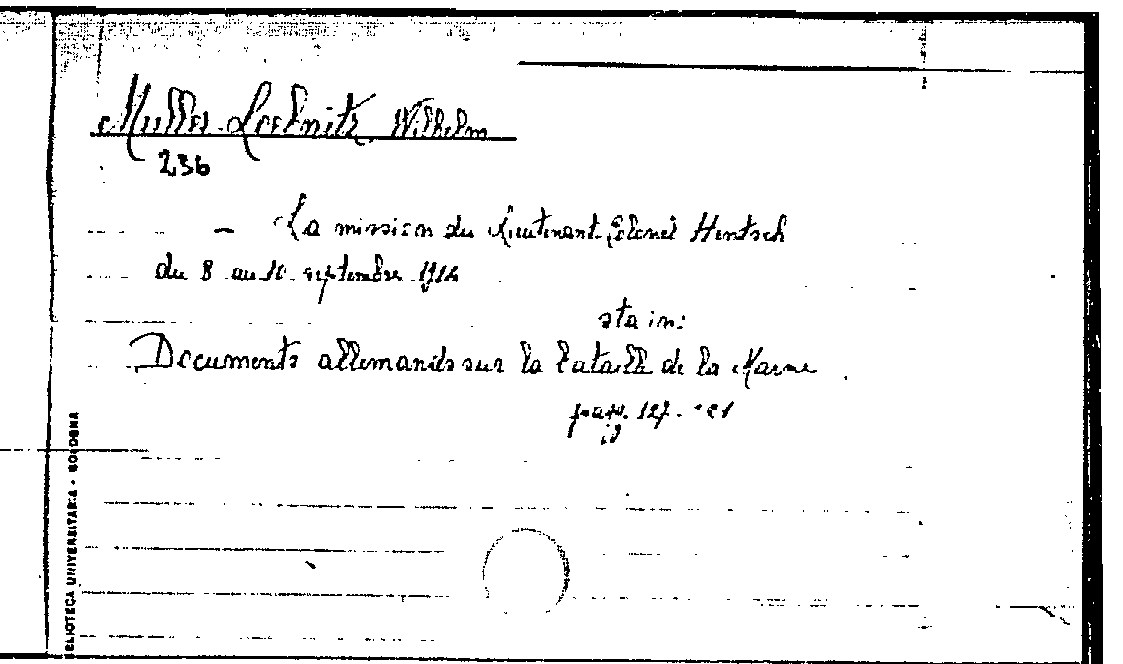 Muller-Loebnitz Wilhelm
236
- La mission du Lieutenant Colonel Hentsch
du 8 au 10 septembre 1914
sta in:
Documents allemands sur la bataille de la Marne
pagg. 127 -
BIBLIOTECA UNIVERSITARIA - BOLOGNA